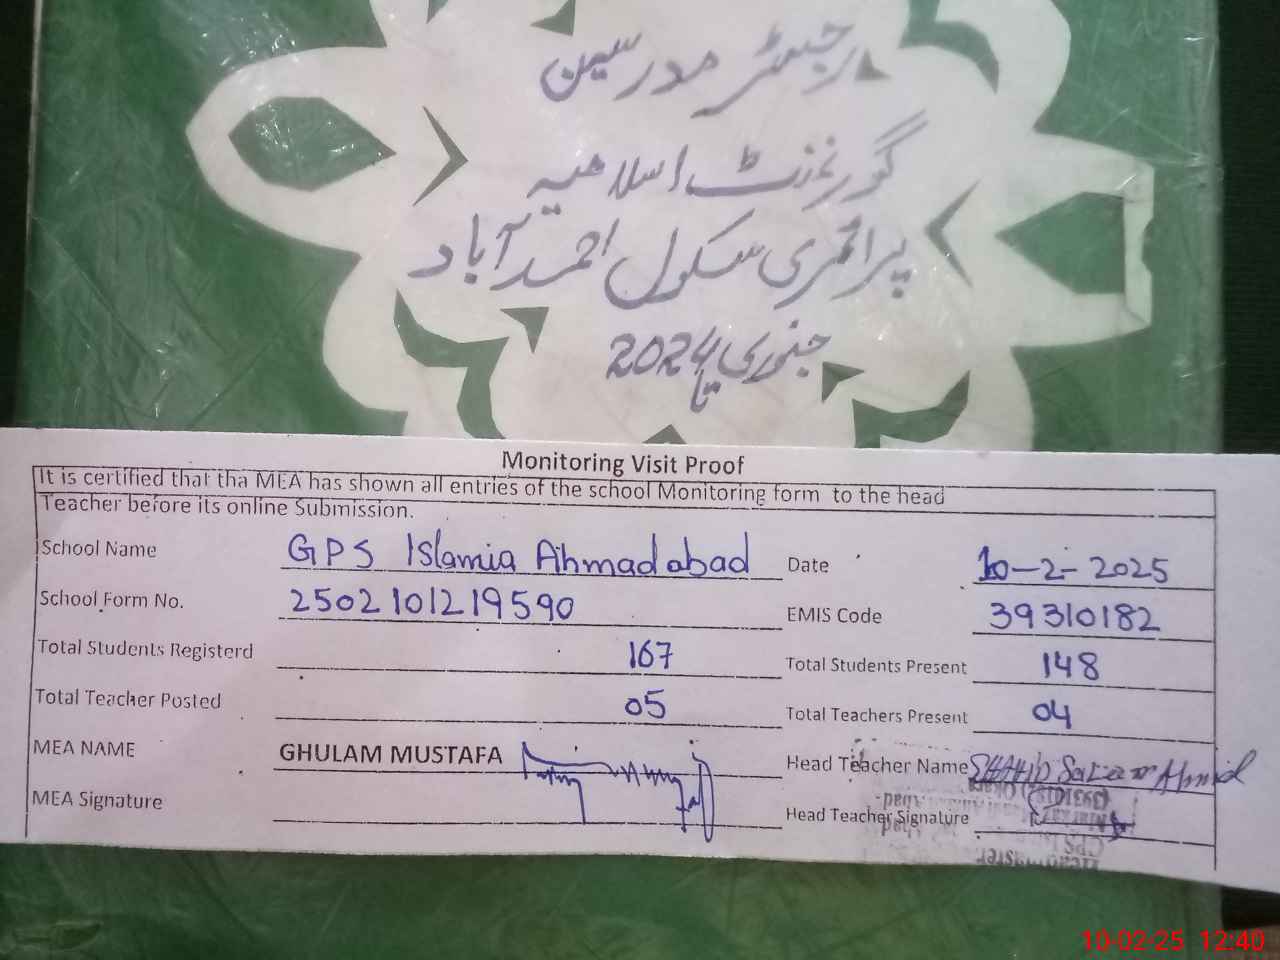 رجسٹر مدرسین
گورنمنٹ اسلامیہ
پرائمری سکول احمد آباد
جنوری 2024 تا
Monitoring Visit Proof
It is certified that tha MEA has shown all entries of the school Monitoring form to the head
Teacher before its online Submission.
School Name GPS Islamia Ahmadabad Date 10-2-2025
School Form No. 2502101219590 EMIS Code 39310182
Total Students Registerd 167 Total Students Present 148
Total Teacher Posted 05 Total Teachers Present 04
MEA NAME GHULAM MUSTAFA Head Teacher Name SHAHID Saleem Ahmad
MEA Signature Head Teacher Signature
10-02-25 12:40